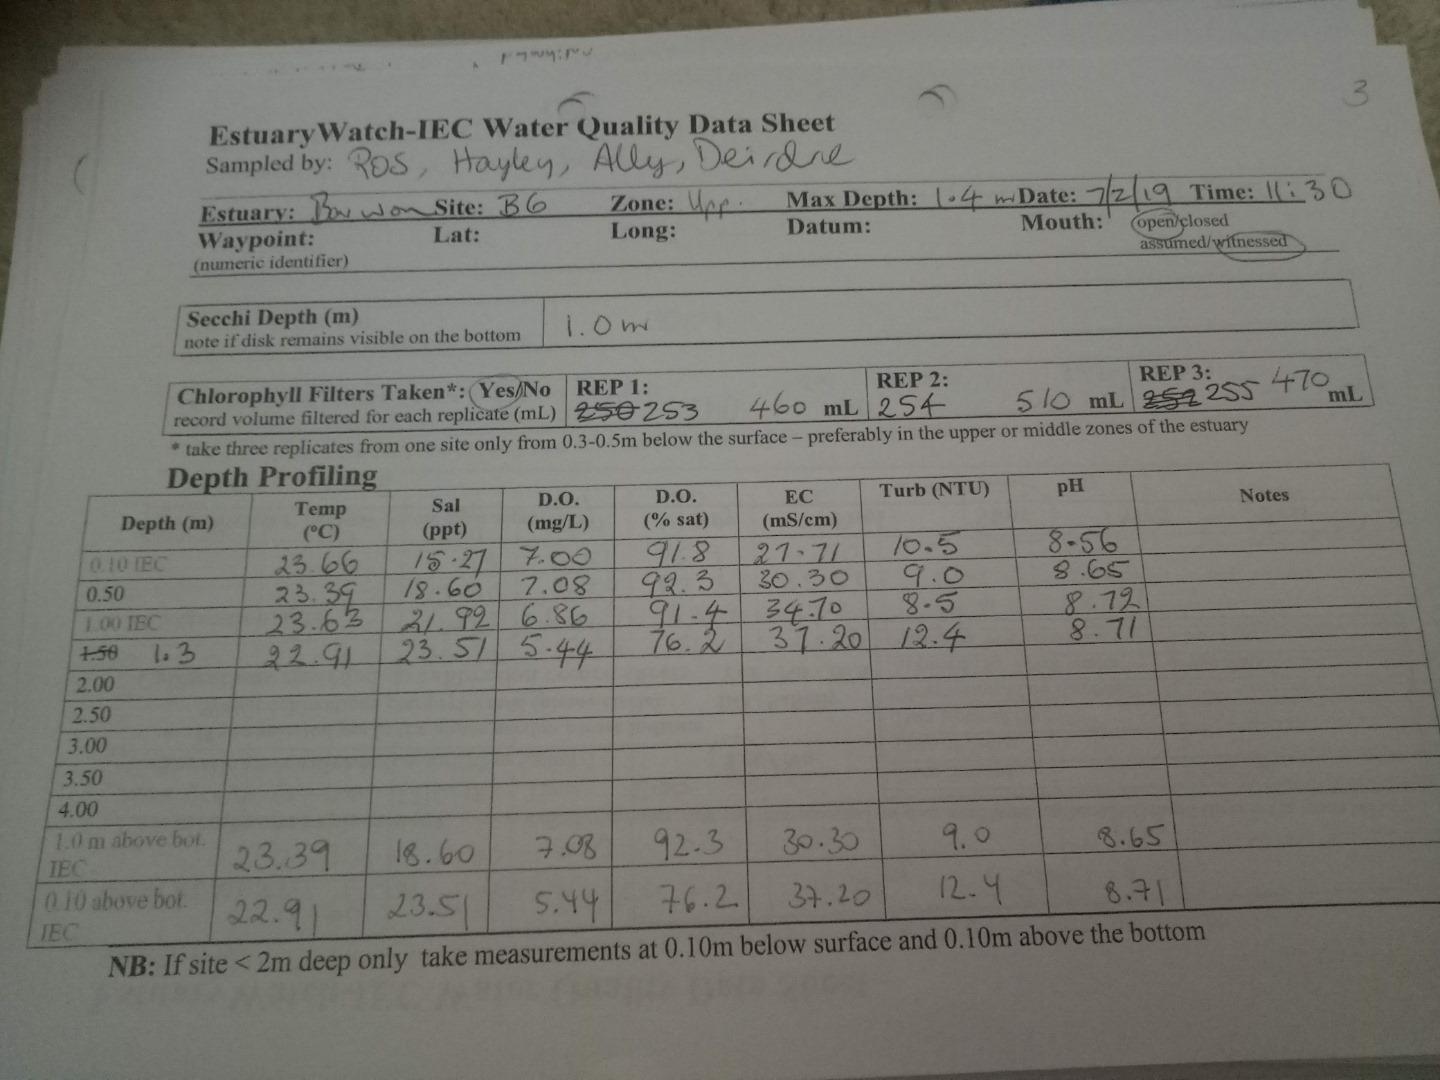 3
EstuaryWatch-IEC Water Quality Data Sheet
Sampled by: ROS, Hayley, Ally, Deirdre
Estuary: Barwon Site: B6 Zone: Upp. Max Depth: 1.4 m Date: 7/2/19 Time: 11:30
Waypoint: Lat: Long: Datum: Mouth: open/closed
(numeric identifier) assumed/witnessed
Secchi Depth (m) 1.0 m
note if disk remains visible on the bottom
Chlorophyll Filters Taken*: Yes/No REP 1: REP 2: REP 3:
record volume filtered for each replicate (mL) 250 253 460 mL 254 510 mL 252 255 470 mL
* take three replicates from one site only from 0.3-0.5m below the surface – preferably in the upper or middle zones of the estuary
Depth Profiling
Depth (m) Temp (°C) Sal (ppt) D.O. (mg/L) D.O. (% sat) EC (mS/cm) Turb (NTU) pH Notes
0.10 IEC 23.66 15.27 7.00 91.8 27.71 10.5 8.56
0.50 23.39 18.60 7.08 92.3 30.30 9.0 8.65
1.00 IEC 23.63 21.92 6.86 91.4 34.70 8.5 8.72
1.50 1.3 22.91 23.51 5.44 76.2 37.20 12.4 8.71
2.00
2.50
3.00
3.50
4.00
1.0 m above bot. IEC 23.39 18.60 7.08 92.3 30.30 9.0 8.65
0.10 above bot. IEC 22.91 23.51 5.44 76.2 37.20 12.4 8.71
NB: If site < 2m deep only take measurements at 0.10m below surface and 0.10m above the bottom